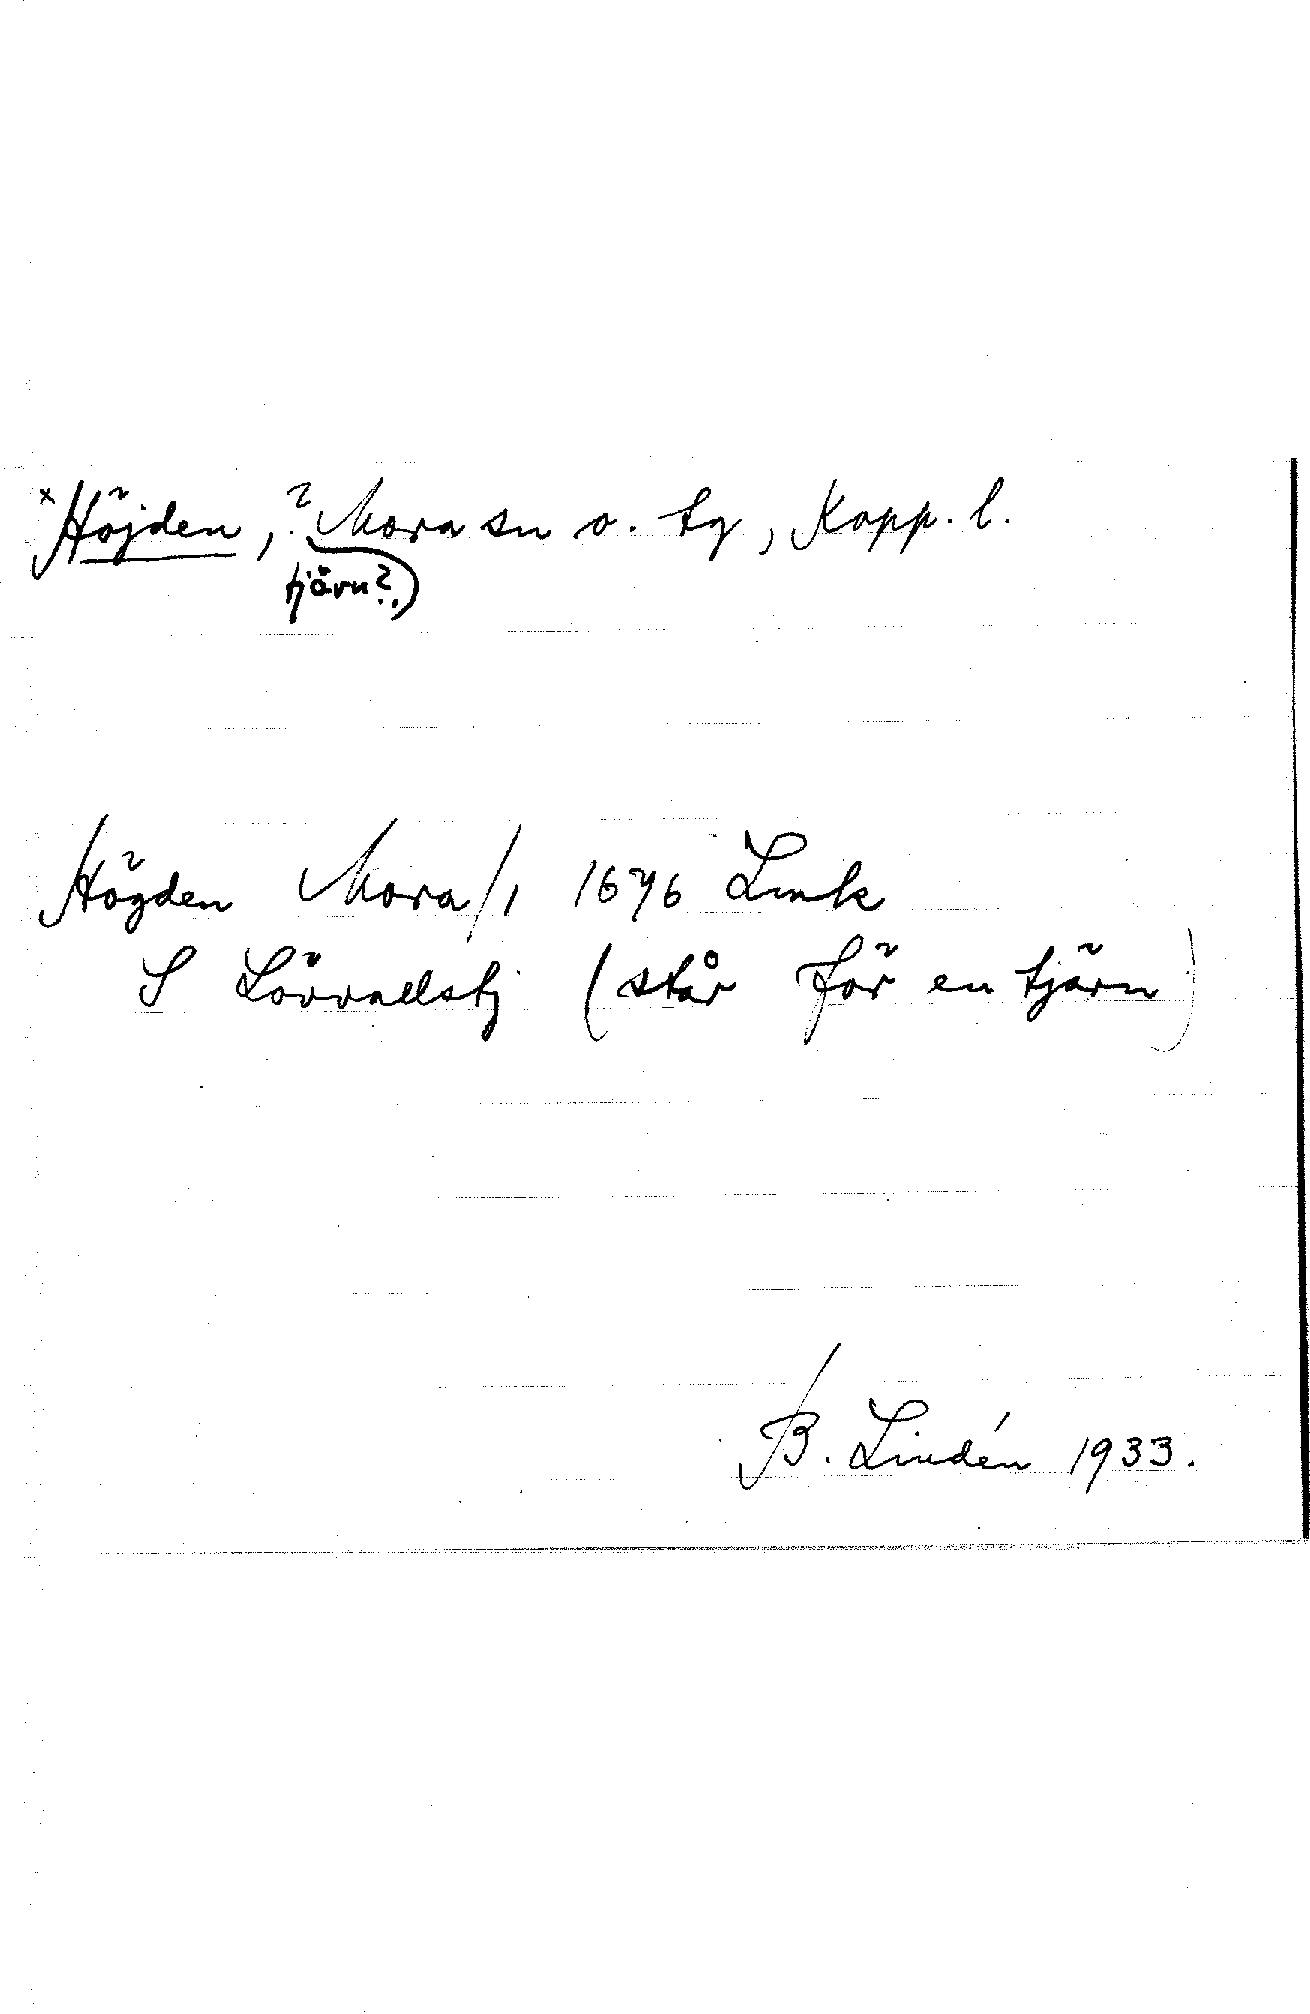 × Höjden, ? Mora sn o. tg, Kopp. l.
tjärn?
Högden Mora/1 1676 Lmk
S Lövvallstj (står för en tjärn)
B. Lindén 1933.